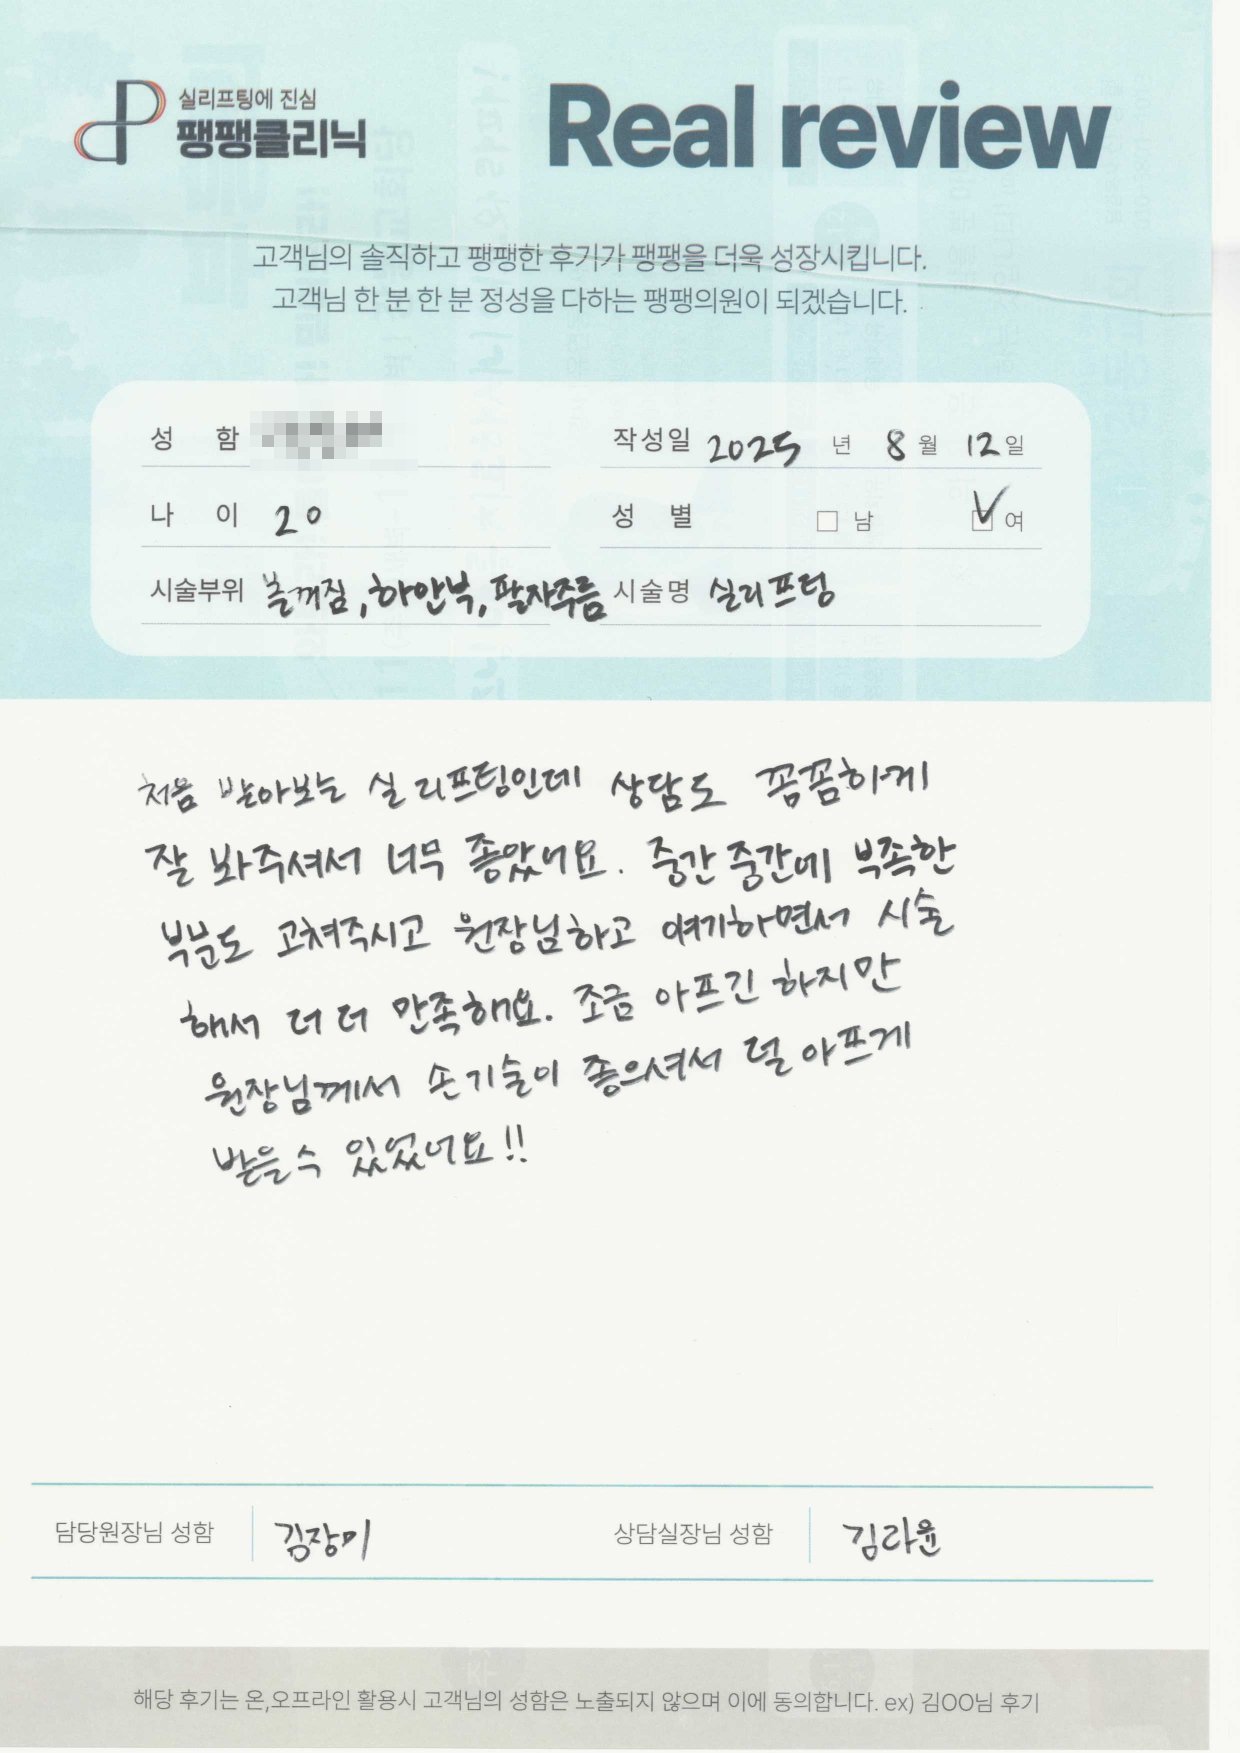 실리프팅에 진심
팽팽클리닉
Real review
고객님의 솔직하고 팽팽한 후기가 팽팽을 더욱 성장시킵니다.
고객님 한 분 한 분 정성을 다하는 팽팽의원이 되겠습니다.
성 함 작성일 2025 년 8 월 12 일
나 이 20 성 별 남 여
시술부위 볼꺼짐, 하안부, 팔자주름 시술명 실리프팅
처음 받아보는 실리프팅인데 상담도 꼼꼼하게
잘 봐주셔서 너무 좋았어요. 중간중간에 부족한
부분도 고쳐주시고 원장님하고 얘기하면서 시술
해서 더 더 만족해요. 조금 아프긴 하지만
원장님께서 손기술이 좋으셔서 덜 아프게
받을수 있었어요!!
담당원장님 성함 김장미 상담실장님 성함 김라윤
해당 후기는 온,오프라인 활용시 고객님의 성함은 노출되지 않으며 이에 동의합니다. ex) 김OO님 후기